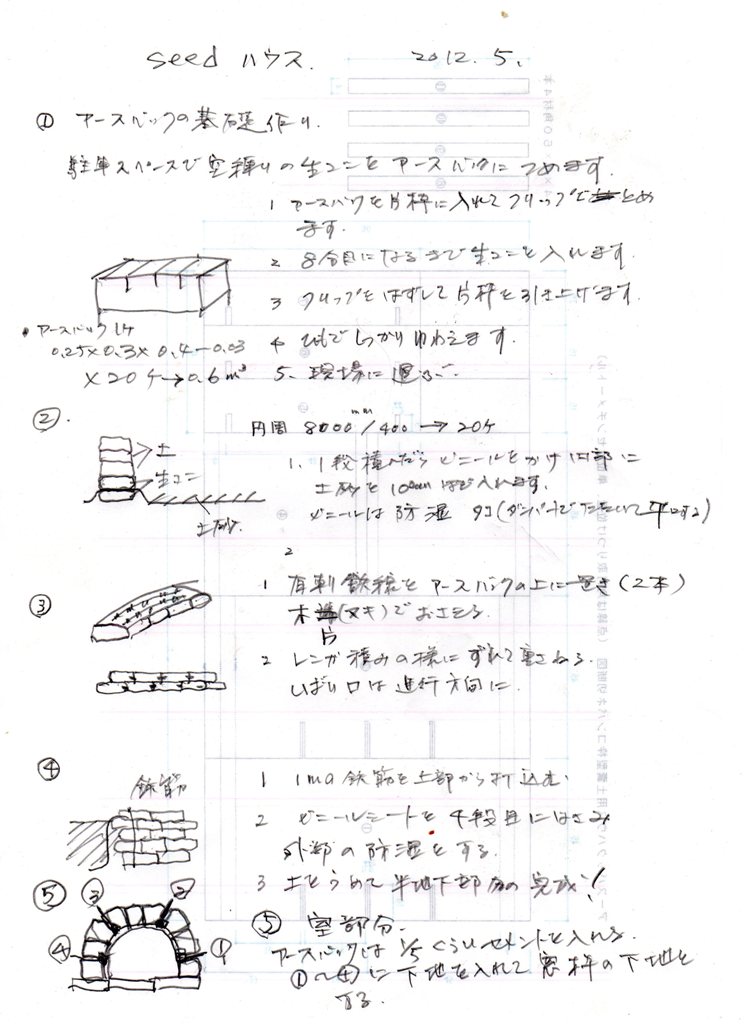 seed ハウス. 2012. 5.
① アースバックの基礎作り.
駐車スペースで空練りの生コンをアースバックにつめます.
1 アースバックを片枠に入れてクリップでとめ
ます.
2 8分目になるまで生コンを入れます.
3 クリップをはずして片枠を引き上げます.
・アースバック1ケ
0.25×0.3×0.4→0.03
×20ケ→0.6m³
4 ひもでしっかりゆわえます.
5. 現場に運ぶ.
②.
円周 8000mm/400 → 20ケ
土
生コン
土砂.
1. 1段積んだらビニールをかけ内部に
土砂を100mmほど入れます.
ビニールは防湿 タコ(ダンパーでたたいて平にする)
2
③
1 有刺鉄線をアースバックの上に置き(2本)
木片(ヌキ)でおさえる.
2 レンガ積みの様にずれて重ねる.
しばり口は進行方向に.
④
鉄筋
1 1mの鉄筋を上部から打込む
2 ビニールシートを4段目にはさみ
外部の防湿をする.
3 土をうめて半地下部分の完成!
⑤
③ ②
④ ①
⑤ 窓部分.
アースバックは1/5くらいセメントを入れる.
①〜④に下地を入れて窓枠の下地と
する.